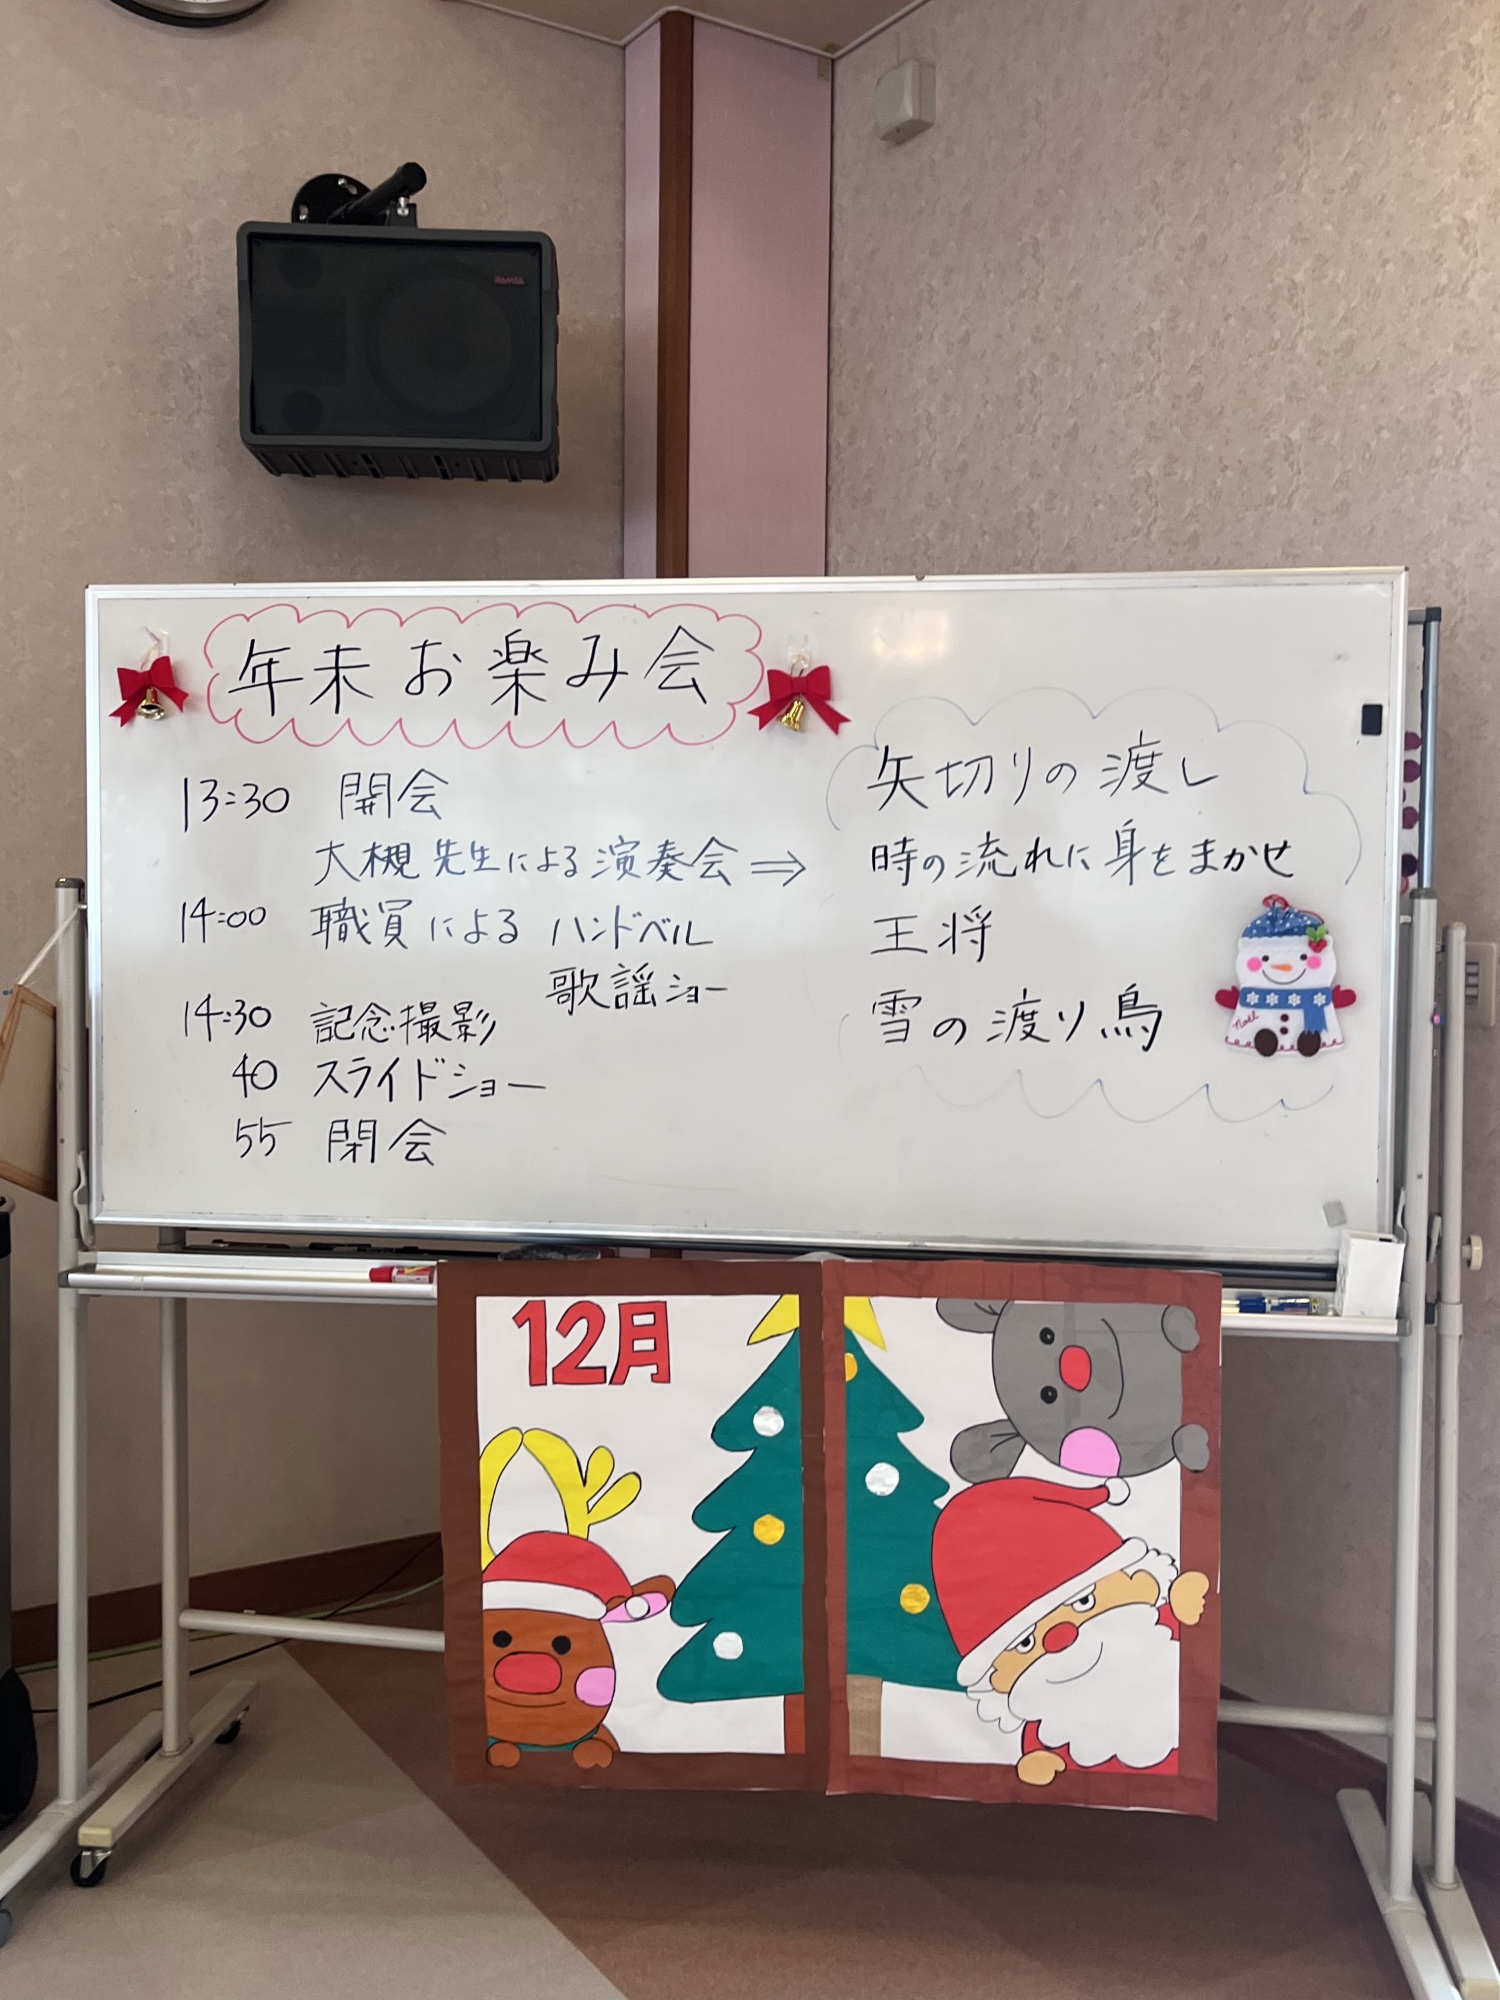 RAMSA
年末お楽み会
13:30 開会
大槻先生による演奏会⇒
14:00 職員による ハンドベル
歌謡ショー
14:30 記念撮影
40 スライドショー
55 閉会
矢切りの渡し
時の流れに身をまかせ
王将
雪の渡り鳥
Noël
12月